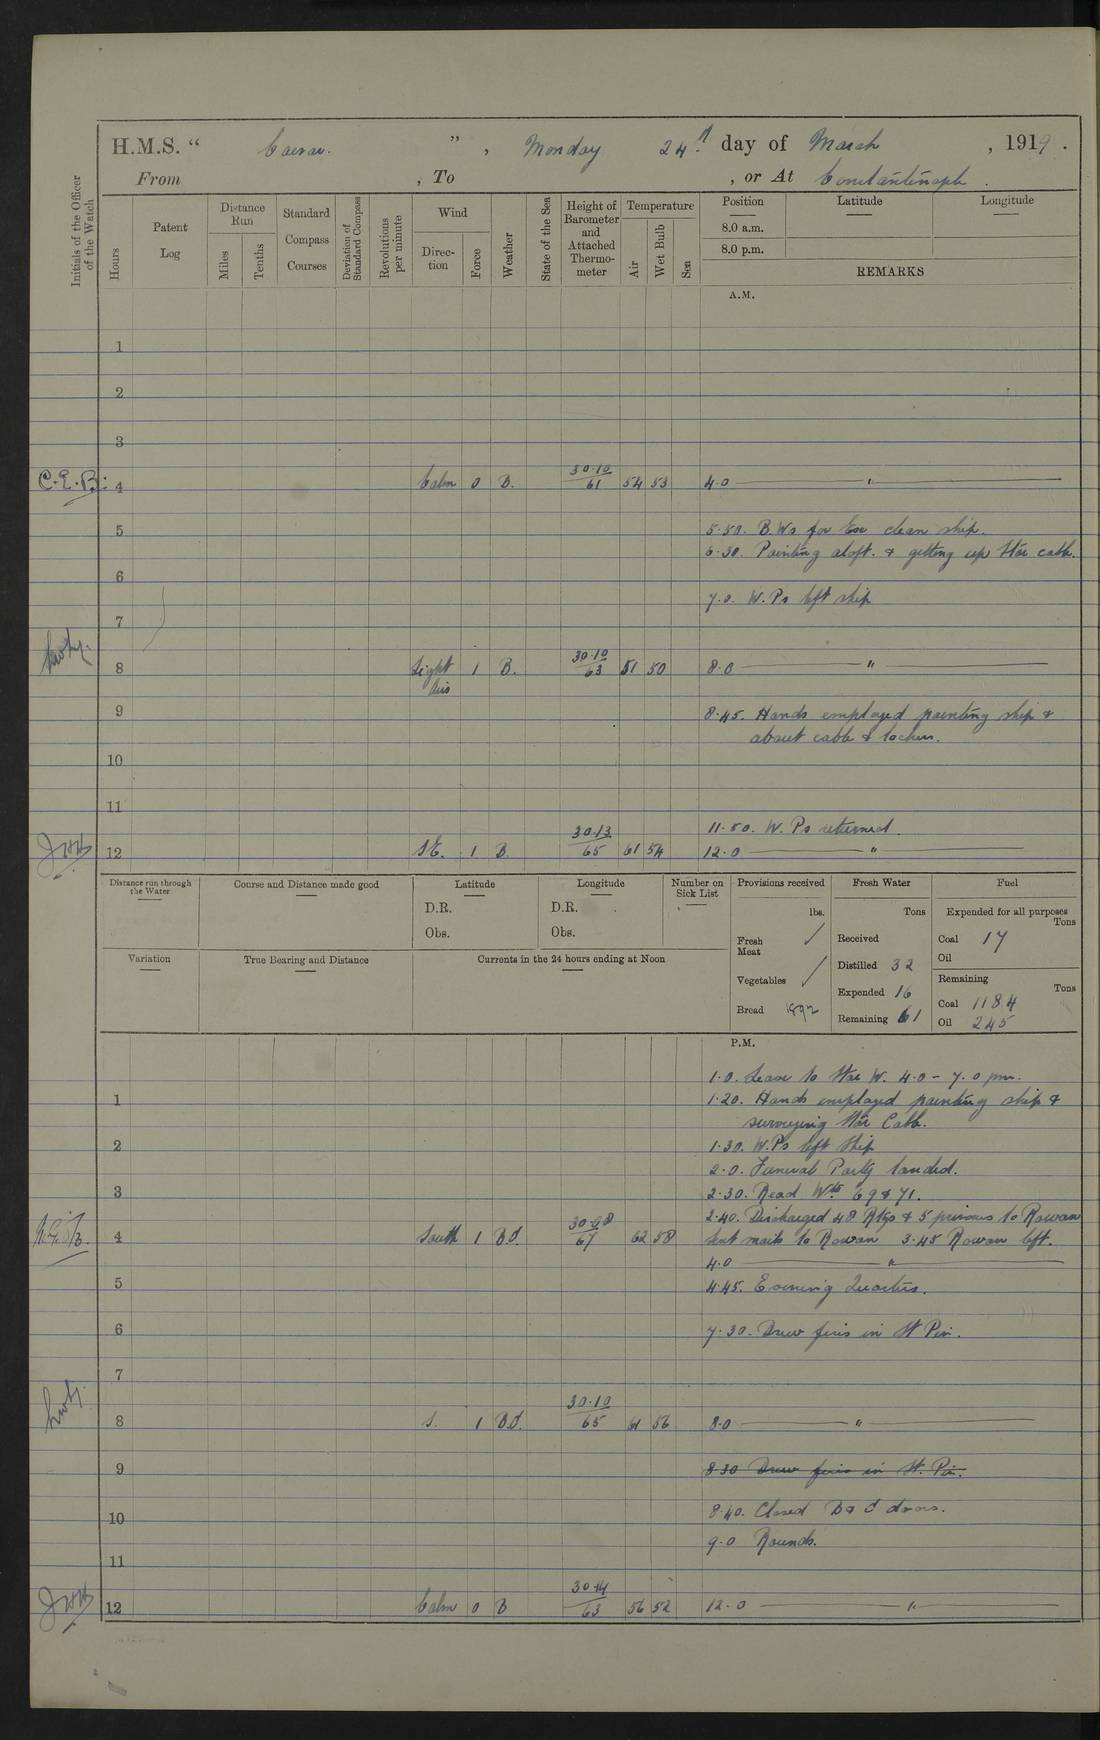 H.M.S. “ Caesar. ” , Monday 24th day of March , 1919 .
From , To , or At Constantinople .
Initials of the Officer of the Watch
Hours
Patent Log
Distance Run
Miles
Tenths
Standard Compass Courses
Deviation of Standard Compass
Revolutions per minute
Wind
Direc-tion
Force
Weather
State of the Sea
Height of Barometer and Attached Thermo-meter
Temperature
Air
Wet Bulb
Sea
Position Latitude Longitude
8.0 a.m.
8.0 p.m.
REMARKS
A.M.
1
2
3
C.E.B. 4 Calm 0 B. 30.10/61 54 53 4.0 — " —
5 5.50. B.Ws for Ex clean ship.
6.30. Painting aloft. & getting up Star cable.
6
7.0. W.Ps left ship
7
8 Light Airs 1 B. 30.10/63 51 50 8.0 — " —
9 8.45. Hands employed painting ship &
about cable & lockers.
10
11
11.50. W. Ps returned.
12 S.E. 1 B. 30.13/65 61 54 12.0 — " —
Distance run through the Water
Course and Distance made good
Latitude
D.R.
Obs.
Longitude
D.R.
Obs.
Number on Sick List
Provisions received
lbs.
Fresh Meat /
Vegetables /
Bread 1892
Fresh Water
Tons
Received
Distilled 32
Expended 16
Remaining 61
Fuel
Expended for all purposes
Tons
Coal 17
Oil
Remaining
Tons
Coal 1184
Oil 245
Variation
True Bearing and Distance
Currents in the 24 hours ending at Noon
P.M.
1.0. Leave to Star W. 4.0 - 7.0 pm.
1 1.20. Hands employed painting ship &
surveying Star Cable.
2 1.30. W.Ps left ship
2.0. Funeral Party landed.
3 2.30. Read Wts 69 & 71.
2.40. Discharged 48 Rtgs & 5 prisoners to Rowan
4 South 1 B.C. 30.08/67 62 58 sent mails to Rowan 3.45 Rowan left.
4.0 — " —
5 4.45. Evening Quarters.
6 7.30. Drew fires in St Pin.
7
8 S. 1 B.C. 30.10/65 61 56 8.0 — " —
9 8.30 Drew fires in St. Pin.
10 8.40. Closed B & C doors.
9.0 Rounds.
11
12 Calm 0 B 30.14/63 56 52 12.0 — " —